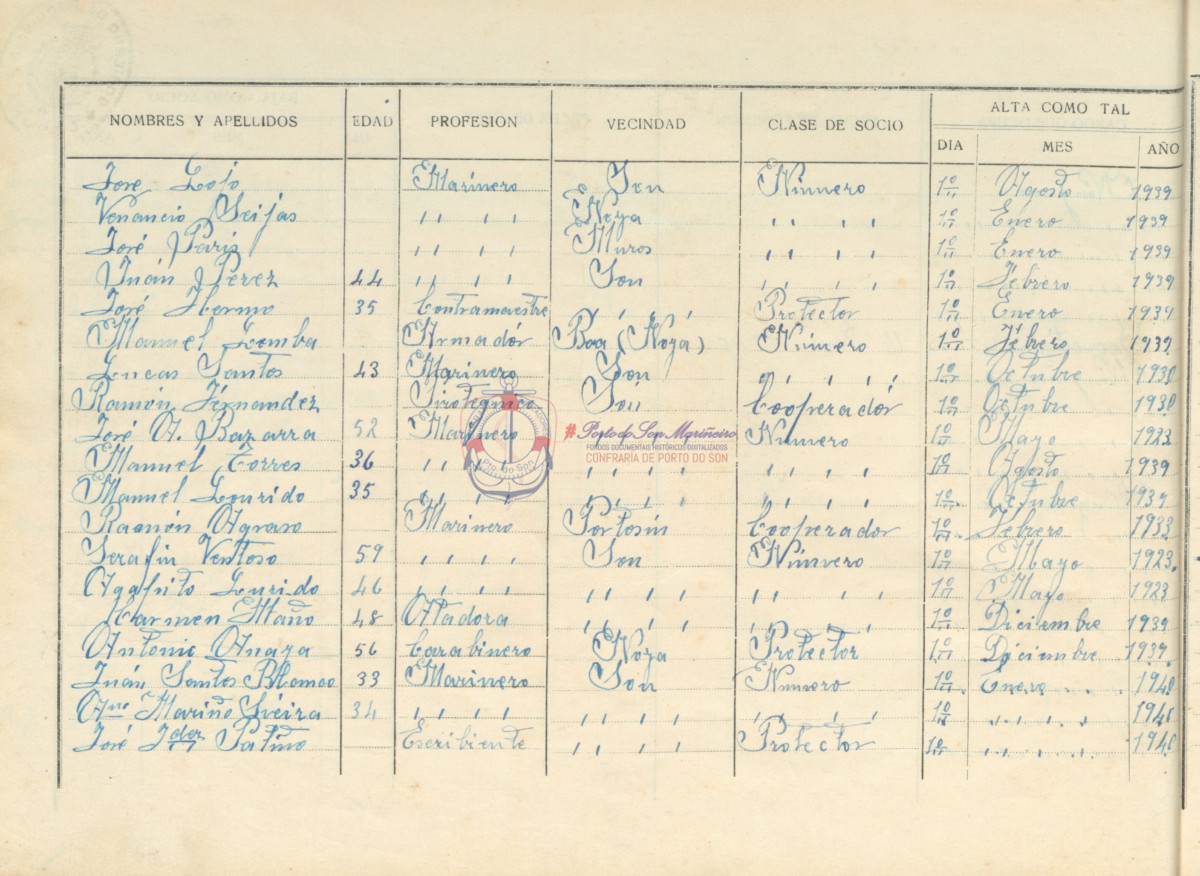 ALTA COMO TAL
NOMBRES Y APELLIDOS EDAD PROFESION VECINDAD CLASE DE SOCIO DIA MES AÑO
José Lojo Marinero Son Número 1º Agosto 1939
Venancio Seijas " " " Noya " " " 1º Enero 1939
José Paris " " " Muros " " " 1º Enero 1939
Juán Pérez 44 " " " Son " " " 1º Febrero 1939
José Hermo 35 Contramaestre Protector 1º Enero 1939
Manuel Lomba Armadór Boa (Noya) Número 1º Fébrero 1939
Lucas Santos 43 Marinero Son " " " 1º Octubre 1930
Ramón Férnandez Pirotegnico Son Cooperadór 1º Octubre 1930
José A. Bazarra 52 Marinero Número 1º Mayo 1923
#Porto do Son Mariñeiro
FONDOS DOCUMENTAIS HISTÓRICOS DIGITALIZADOS
CONFRARÍA DE PORTO DO SON
Pto. do Son
Manuel Torres 36 " " " " " " " " " 1º Agosto 1939
Manuel Lourido 35 " " " " " " " " " 1º Octubre 1939
Ramón Agraso Marinero Portosin Cooperador 1º Febrero 1933
Serafin Ventoso 59 " " " Son Número 1º Mayo 1923
Agapito Lurido 46 " " " " " " " " " 1º Mayo 1923
Carmen Maño 48 Atadora " " " " " " 1º Diciembre 1939
Antonio Anaya 56 Carabinero Noya Protector 1º Diciembre 1939
Juán Santos Blanco 33 Marinero Son Número 1º Enero 1940
Ano Mariño Sieira 34 " " " " " " " " " 1º " " " 1940
José Fder Patiño Escribiente " " " Protector 1º " " " 1940